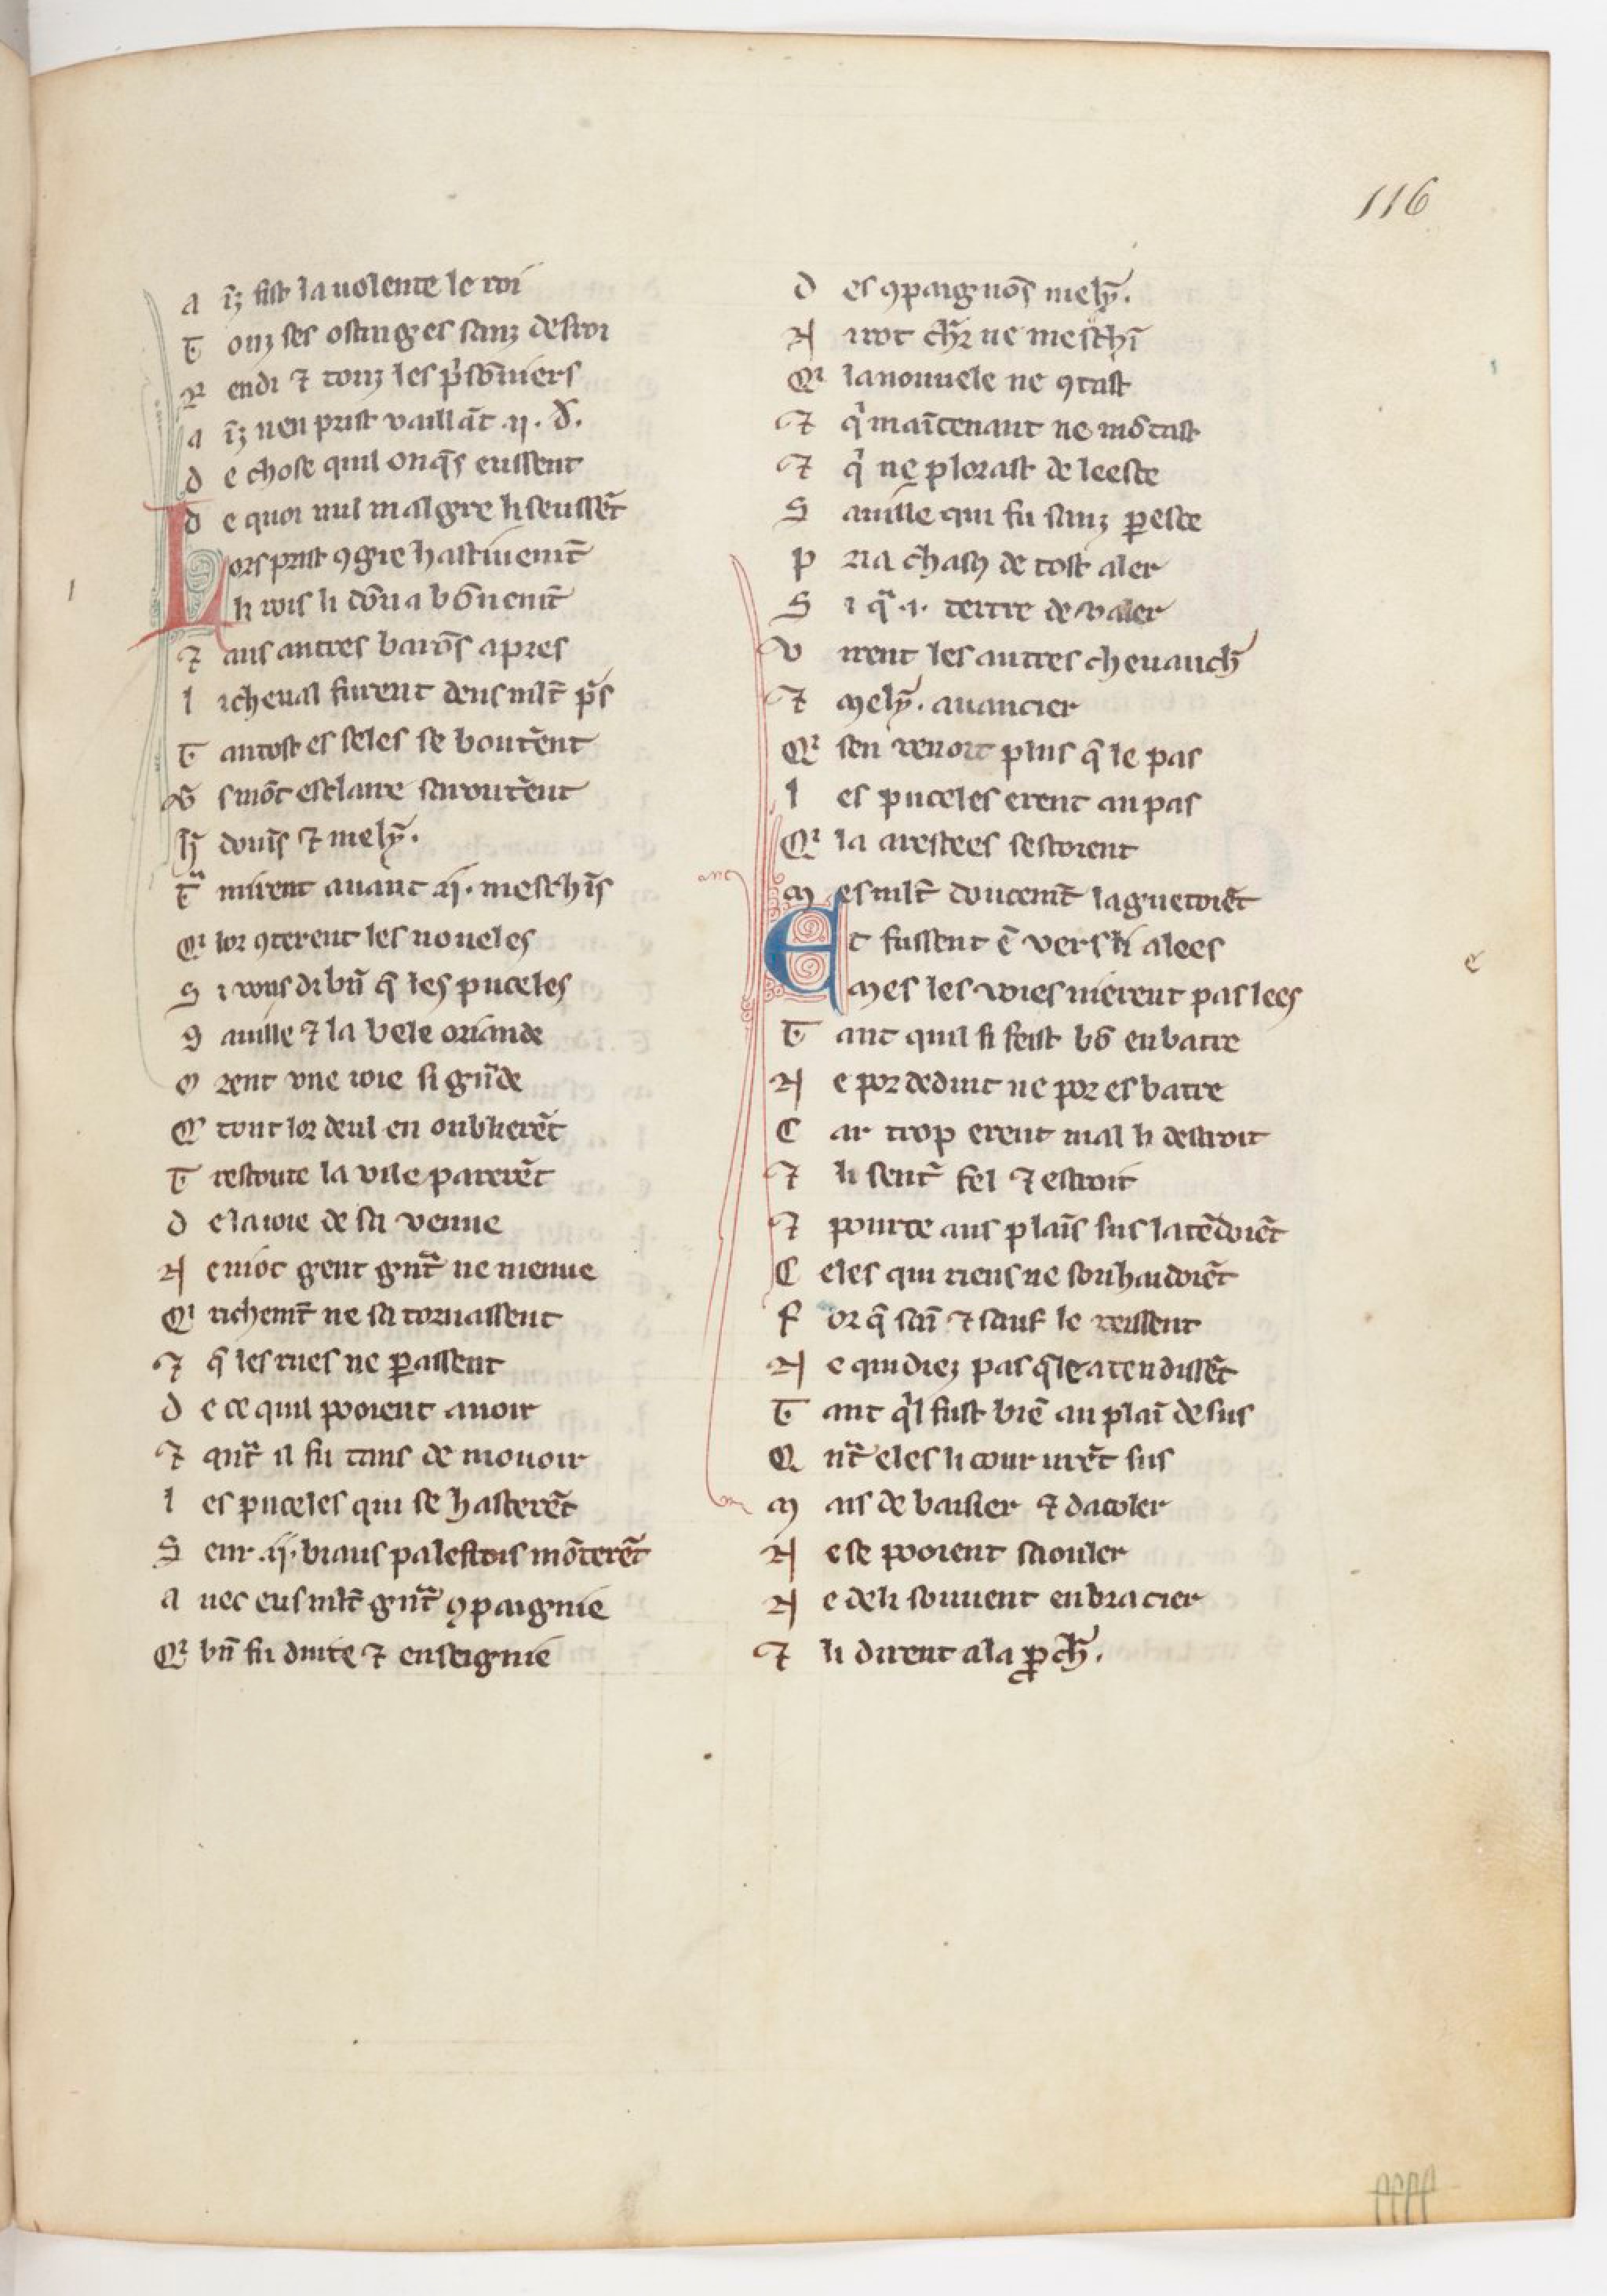 116
a īz fist la uolente le roi
T ouz ses ostaiges sanz desroi
R endi ⁊ touz les p̍sōniers
a īz nen prist vaillāt .ij. d̄.
d e chose quil onq̄s eussent
d e quoi nul malgre li seussēt
Lors prist ꝯgie hastiuemt̄
Li rois li dōna bōnemt̄
⁊ aus autres barōs apres
l i cheual furent deus mlt̄ p̄s
T antost es seles se boutērent
V s mōt esclaire sarouterēt
h̄ douīs ⁊ mely᷈.
Tᵃ mirent auant .ij. meschīs
Qͥ lor ꝯterent les noueles
S i vous di bn̄ q̄ les puceles
S auille ⁊ la bele oriande
O rent vne ioie si grᵃde
Qͥ tout lor deul en oublierēt
T restoute la vile parerēt
d e la ioie de sa venue
N e niot gent grᵃt ne menue
Qͥ richemt̄ ne sa tornassent
⁊ q̄ les rues ne ꝑassent
d e ce quil pooient auoir
⁊ qᵃnt il fu tans de mouoir
l es puceles qui se hasterēt
S eur .ij. biaus palefrois mōterēt
a uec eus mlt̄ grᵃt ꝯpaignie
Qͥ bn̄ fu duite ⁊ enseignie
d es ꝯpaignōs mely᷈.
N i rot ch̄r ne meschī
Qͥ la nouuele ne ꝯtast
⁊ qͥ maītenant ne mōtast
⁊ qͥ ne plorast de leesce
S auille qui fu sanz ꝑesce
p ria chasꝯ de tost aler
S i qᵃ .i. tertre deualer
V irent les autres cheuauch̄
⁊ mely᷈. auancier
Qͥ sen venoit plus q̄ le pas
l es puceles erent au pas
Qͥ la arestees sestoient
M es mlt̄ doucemt̄ laguetoiēt
Et fussent ē vers li alees
Mes les voies nierent pas lees
T ant quil si feist bō enbatre
N e por deduit ne por esbatre
C ar trop erent mal li destroit
⁊ li sentͥ fel ⁊ estroit
⁊ pource aus plaīs sus latēdoiēt
C eles qui riens ne souhaidoiēt
F or q̄ saī ⁊ sauf le reussent
N e quidiez pas q̄le atendissēt
T ant qͥl fust biē au plaī desus
Q nᵃt eles li coururēt sus
M ais de baisier ⁊ dacoler
N e se pooient saouler
N e de li souuent enbracier
⁊ li dirent a la ꝓch̄.